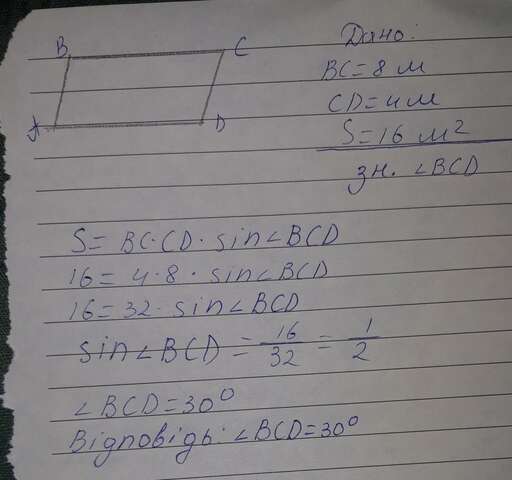 B C
A D
Дано:
BC=8 м
CD=4м
S=16 м²
зн. ∠BCD
S= BC·CD·sin∠BCD
16= 4·8·sin∠BCD
16=32·sin∠BCD
sin∠BCD = 16/32 = 1/2
∠BCD=30°
Відповідь: ∠BCD=30°